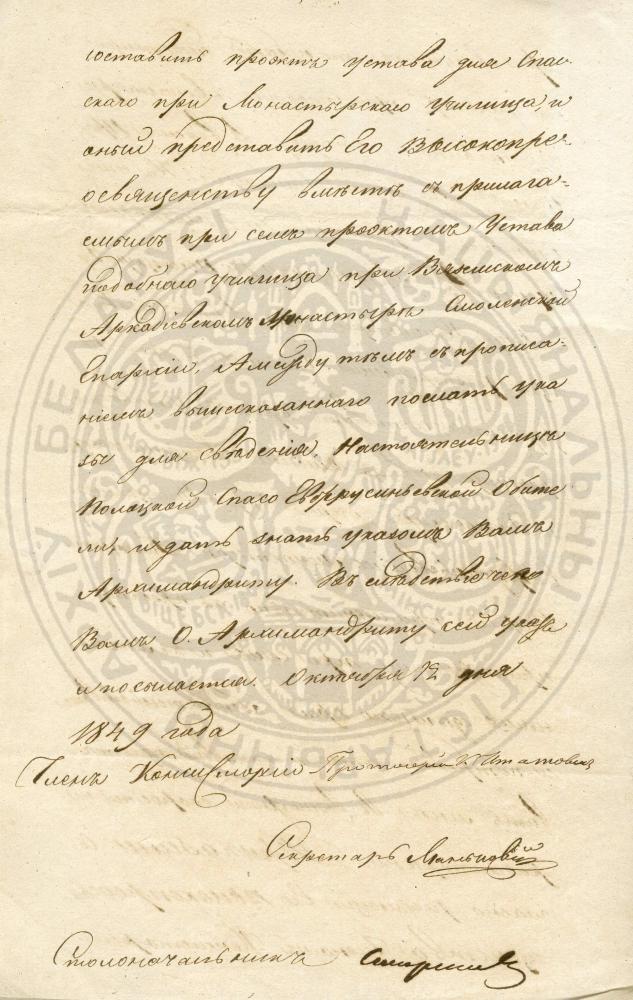 составить проэктъ устава для Спас-
скаго при Монастырскаго училища, и
оный представить Его Высокопре-
освященству вмѣстѣ съ прилага-
емымъ при семъ проэктомъ Устава
подобнаго училища при Вяземскомъ
Аркадіевскомъ Монастырѣ Смоленской
Епархіи, А между тѣмъ съ прописа-
ніемъ вышесказаннаго послать ука
зы для свѣденія. Настоятельницѣ
Полоцкой Спасо Евфрусиньевской Обите
ли, и дать знать указомъ Вамъ
Архимандриту. Въ слѣдствіе чего
Вамъ О. Архимандриту сей указъ
и посылается. Октября 12 дня
1849 года
Членъ Консисторіи Протоіерей
Секретарь
Столоначальникъ